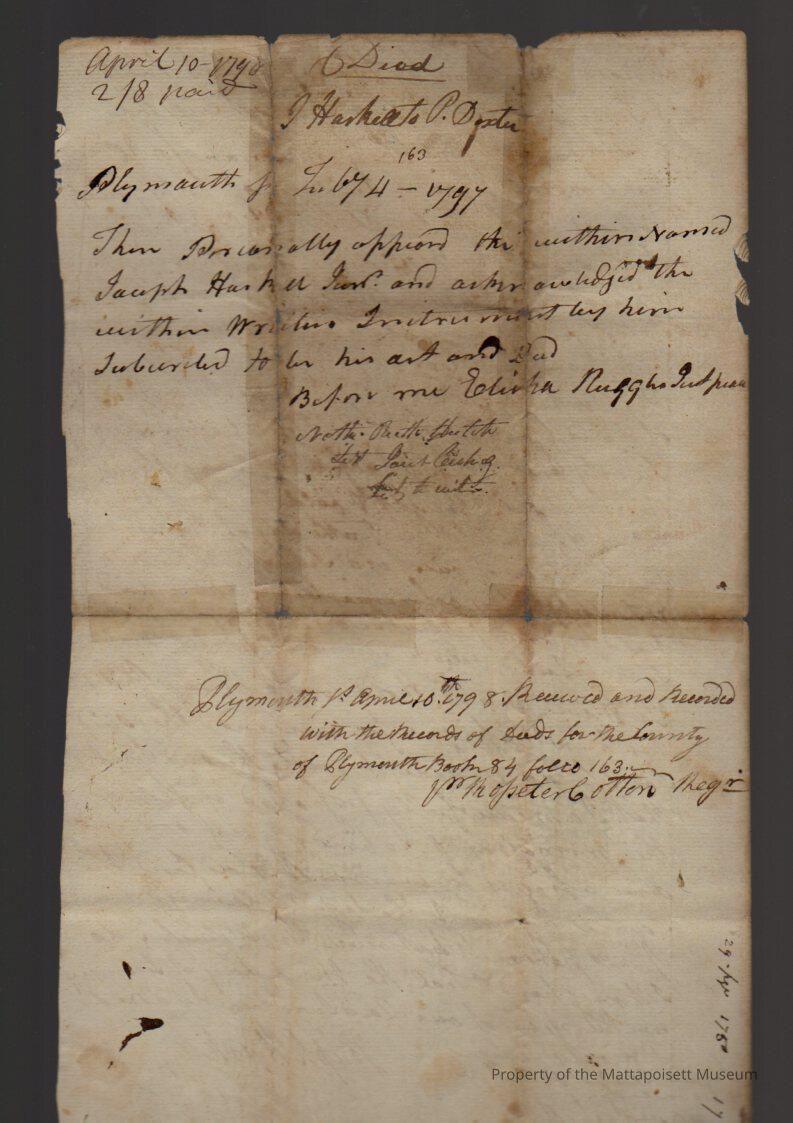 April 10 - 1798
2/8 paid
A Deed
J Haskell to P. Dexter
163
Plymouth ss Feby 4 - 1797
Then Precanally appeard the within Named
Joseph Haskell Junr. and acknowledged the
within Writin Instrument by him
Subscrided to be his act and Deed
Before me Elisha Ruggles Just peace
Plymouth ss April 10th. 1798. Received and Recorded
with the Records of Deeds for the County
of Plymouth Book 84 folio 163.
pr Rosseter Cotton Regr.
Property of the Mattapoisett Museum